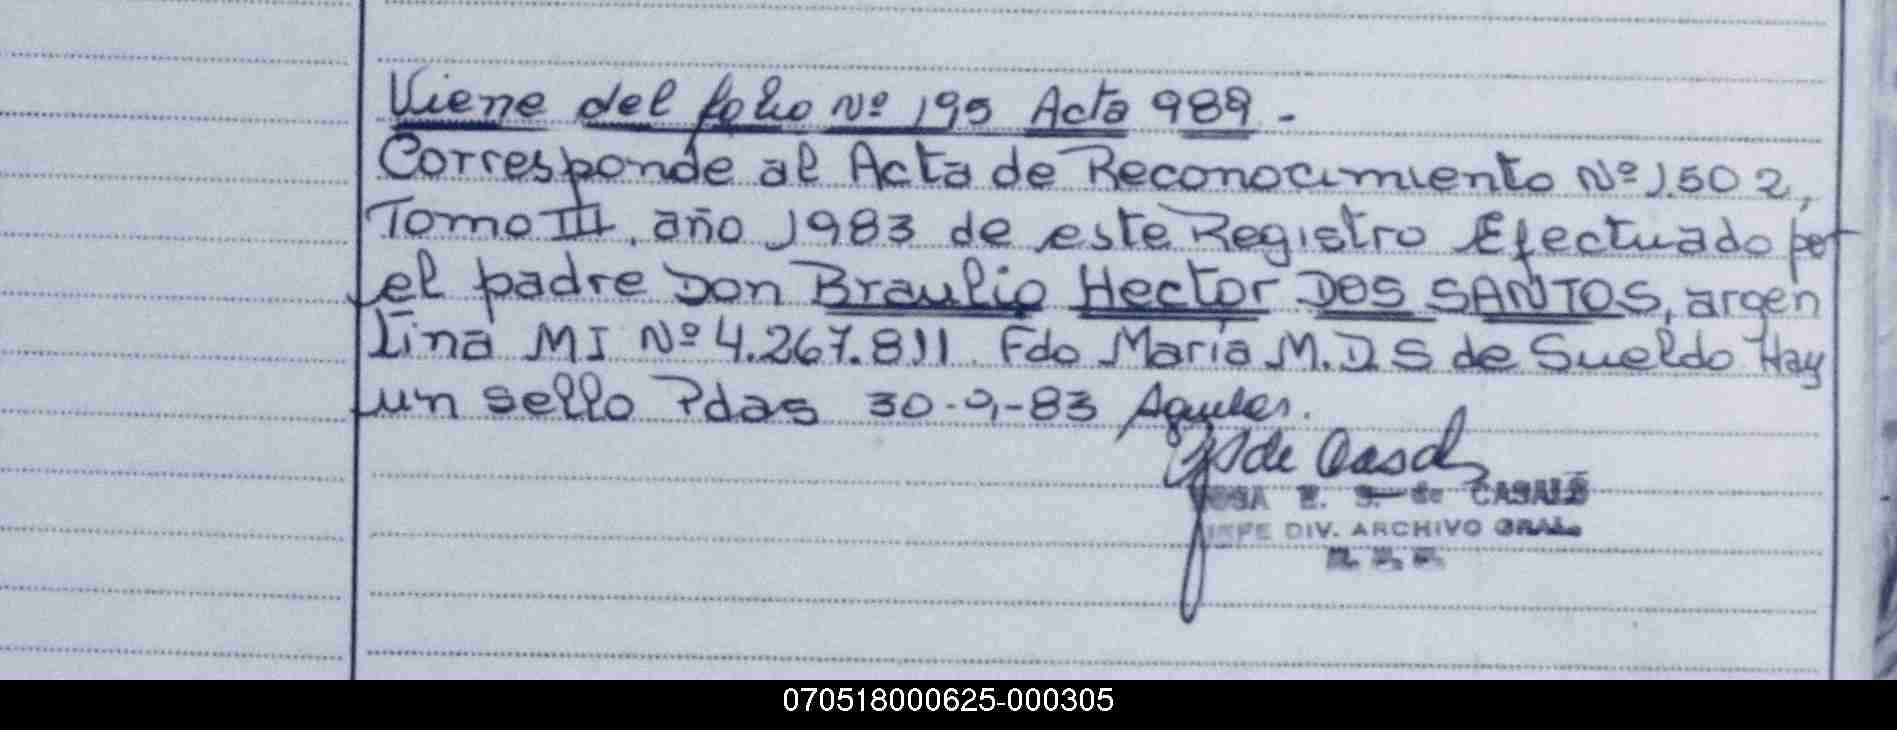 Viene del folio Nº 195 Acta 989.-
Corresponde al Acta de Reconocimiento Nº 1.502,
Tomo III, año 1983 de este Registro Efectuado por
el padre Don Braulio Hector DOS SANTOS, argen
tina MI Nº 4.267.811. Fdo Maria M. D S de Sueldo Hay
un sello Pdas 30-9-83
E. S. de CASALS
JEFE DIV. ARCHIVO GRAL.
070518000625-000305